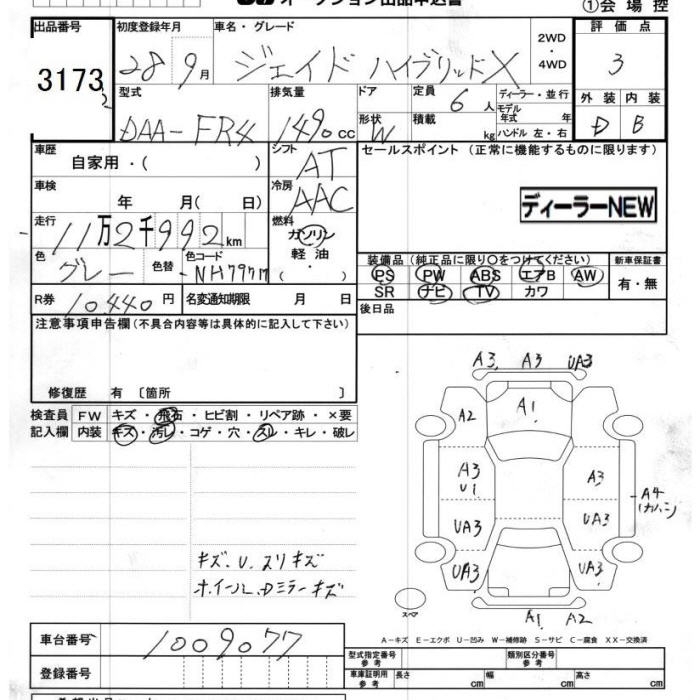 オークション出品申込書
①会場控
出品番号 初度登録年月 車名・グレード 評価点
3173 28 9月 ジェイド ハイブリッドX 2WD・4WD 3
型式 排気量 ドア 定員 6人 ディーラー・並行 外装 内装
DAA-FR4 1490cc 形状 W 積載 kg モデル年式 年 ハンドル 左・右 D B
車歴 自家用・( ) シフト AT セールスポイント (正常に機能するものに限ります)
車検 年 月( 日) 冷房 AAC ディーラーNEW
走行 11万2千992km 燃料 ガソリン・軽油・( )
色 グレー 色替 色コード NH797M
装備品 (純正品に限り○をつけてください) 新車保証書
PS PW ABS エアB AW 有・無
SR ナビ TV カワ
R券 10.440円 名変通知期限 月 日 後日品
注意事項申告欄 (不具合内容等は具体的に記入して下さい)
修復歴 有 〔箇所 〕
検査員 FW キズ・飛石・ヒビ割・リペア跡・×要
記入欄 内装 キズ・汚レ・コゲ・穴・スレ・キレ・破レ
A3 A3 UA3
A2 A1
A3 U1 A3 A4
UA3 UA3
UA3 UA3
スペア
A1 A2
キズ、U、スリキズ
ホイール、Dミラーキズ
A-キズ E-エクボ U-凹み W-補修跡 S-サビ C-腐食 XX-交換済
車台番号 1009077
登録番号
型式指定番号 参考 類別区分番号 参考
車庫証明用 参考 長さ cm 幅 cm 高さ cm